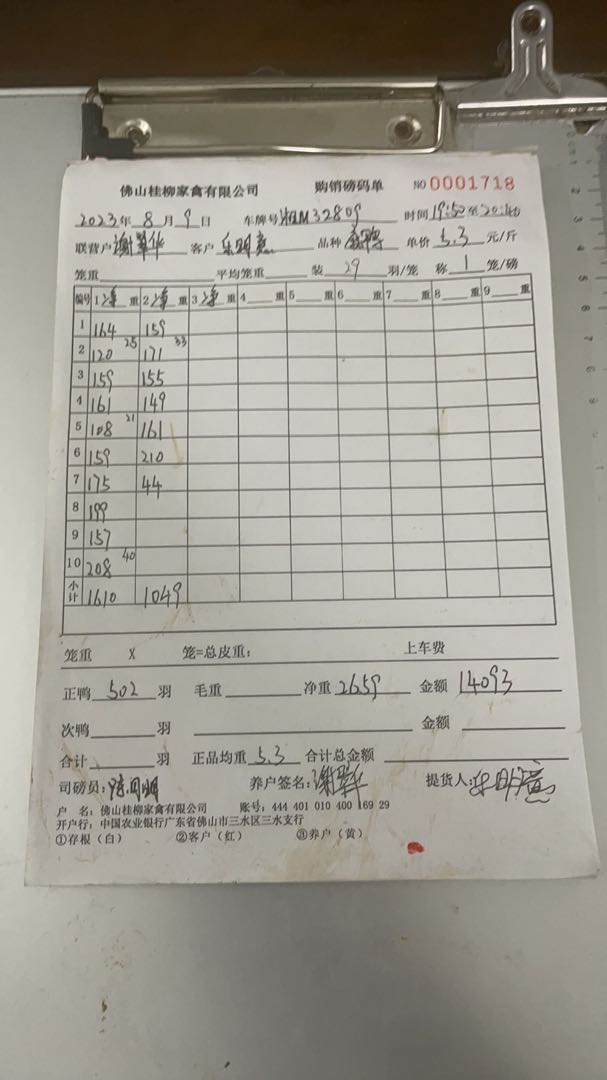 佛山桂柳家禽有限公司 购销磅码单 NO 0001718
2023年 8 月 9 日 车牌号 湘M32809 时间 19:50至20:40
联营户 谢翠华 客户 品种 单价 5.3 元/斤
笼重 平均笼重 装 29 羽/笼 称 1 笼/磅
编号 1 净 重 2 净 重 3 净 重 4 重 5 重 6 重 7 重 8 重 9 重
1 164 159
2 120 25 171 33
3 159 155
4 161 149
5 108 21 161
6 159 210
7 175 44
8 199
9 157
10 208 40
小计 1610 1049
笼重 X 笼=总皮重: 上车费
正鸭 502 羽 毛重 净重 2659 金额 14093
次鸭 羽 金额
合计 羽 正品均重 5.3 合计总金额
司磅员: 养户签名: 谢翠华 提货人:
户 名: 佛山桂柳家禽有限公司 账号: 444 401 010 400 169 29
开户行: 中国农业银行广东省佛山市三水区三水支行
①存根（白） ②客户（红） ③养户（黄）